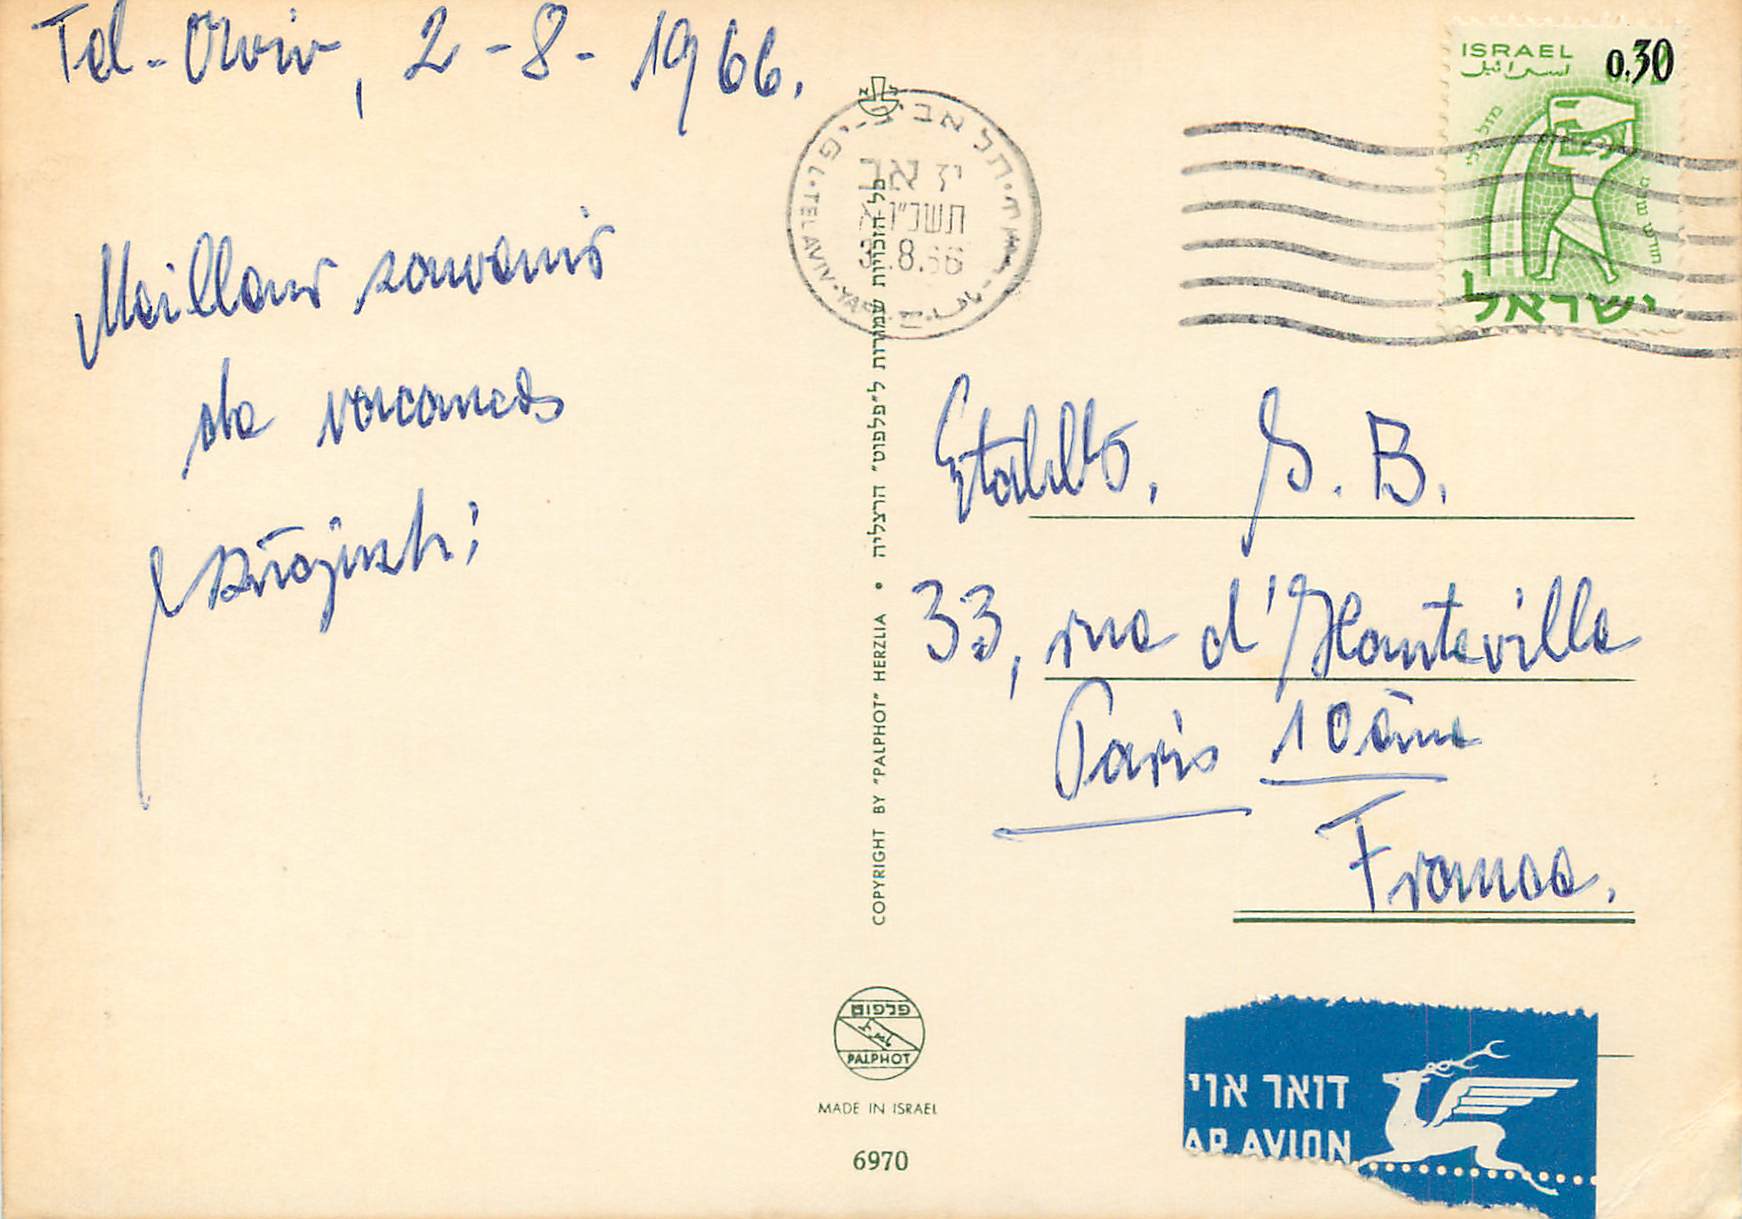 Tel-Aviv, 2-8-1966.
Meilleur souvenir
de vacances
Etablts. S. B.
33, rue d'Hauteville
Paris 10ème
France.
ISRAEL 0.30
اسرائيل
מזל דלי
ישראל
תל אביב-יפו
יז אב
תשכ"ו
.8.66
TEL AVIV-YAFO
כל הזכויות שמורות ל"פלפוט" הרצליה • COPYRIGHT BY "PALPHOT" HERZLIA
פלפוט
PALPHOT
MADE IN ISRAEL
6970
דואר אויר
PAR AVION